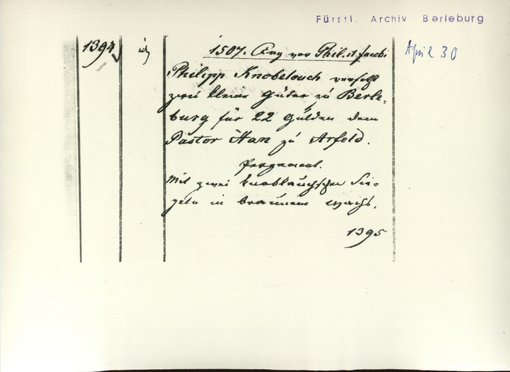 Fürstl. Archiv Berleburg
April 30
1394
id
1507. Aug vor Phil. et Jacobi
Philipp Knobelouch versetzt
zwei kleine Güter zu Berle-
burg für 22 Gülden dem
Pastor Han zu Arfeld.
Pergament.
Mit zwei knoblauchschen Sie-
geln in braunem Wachs.
1395